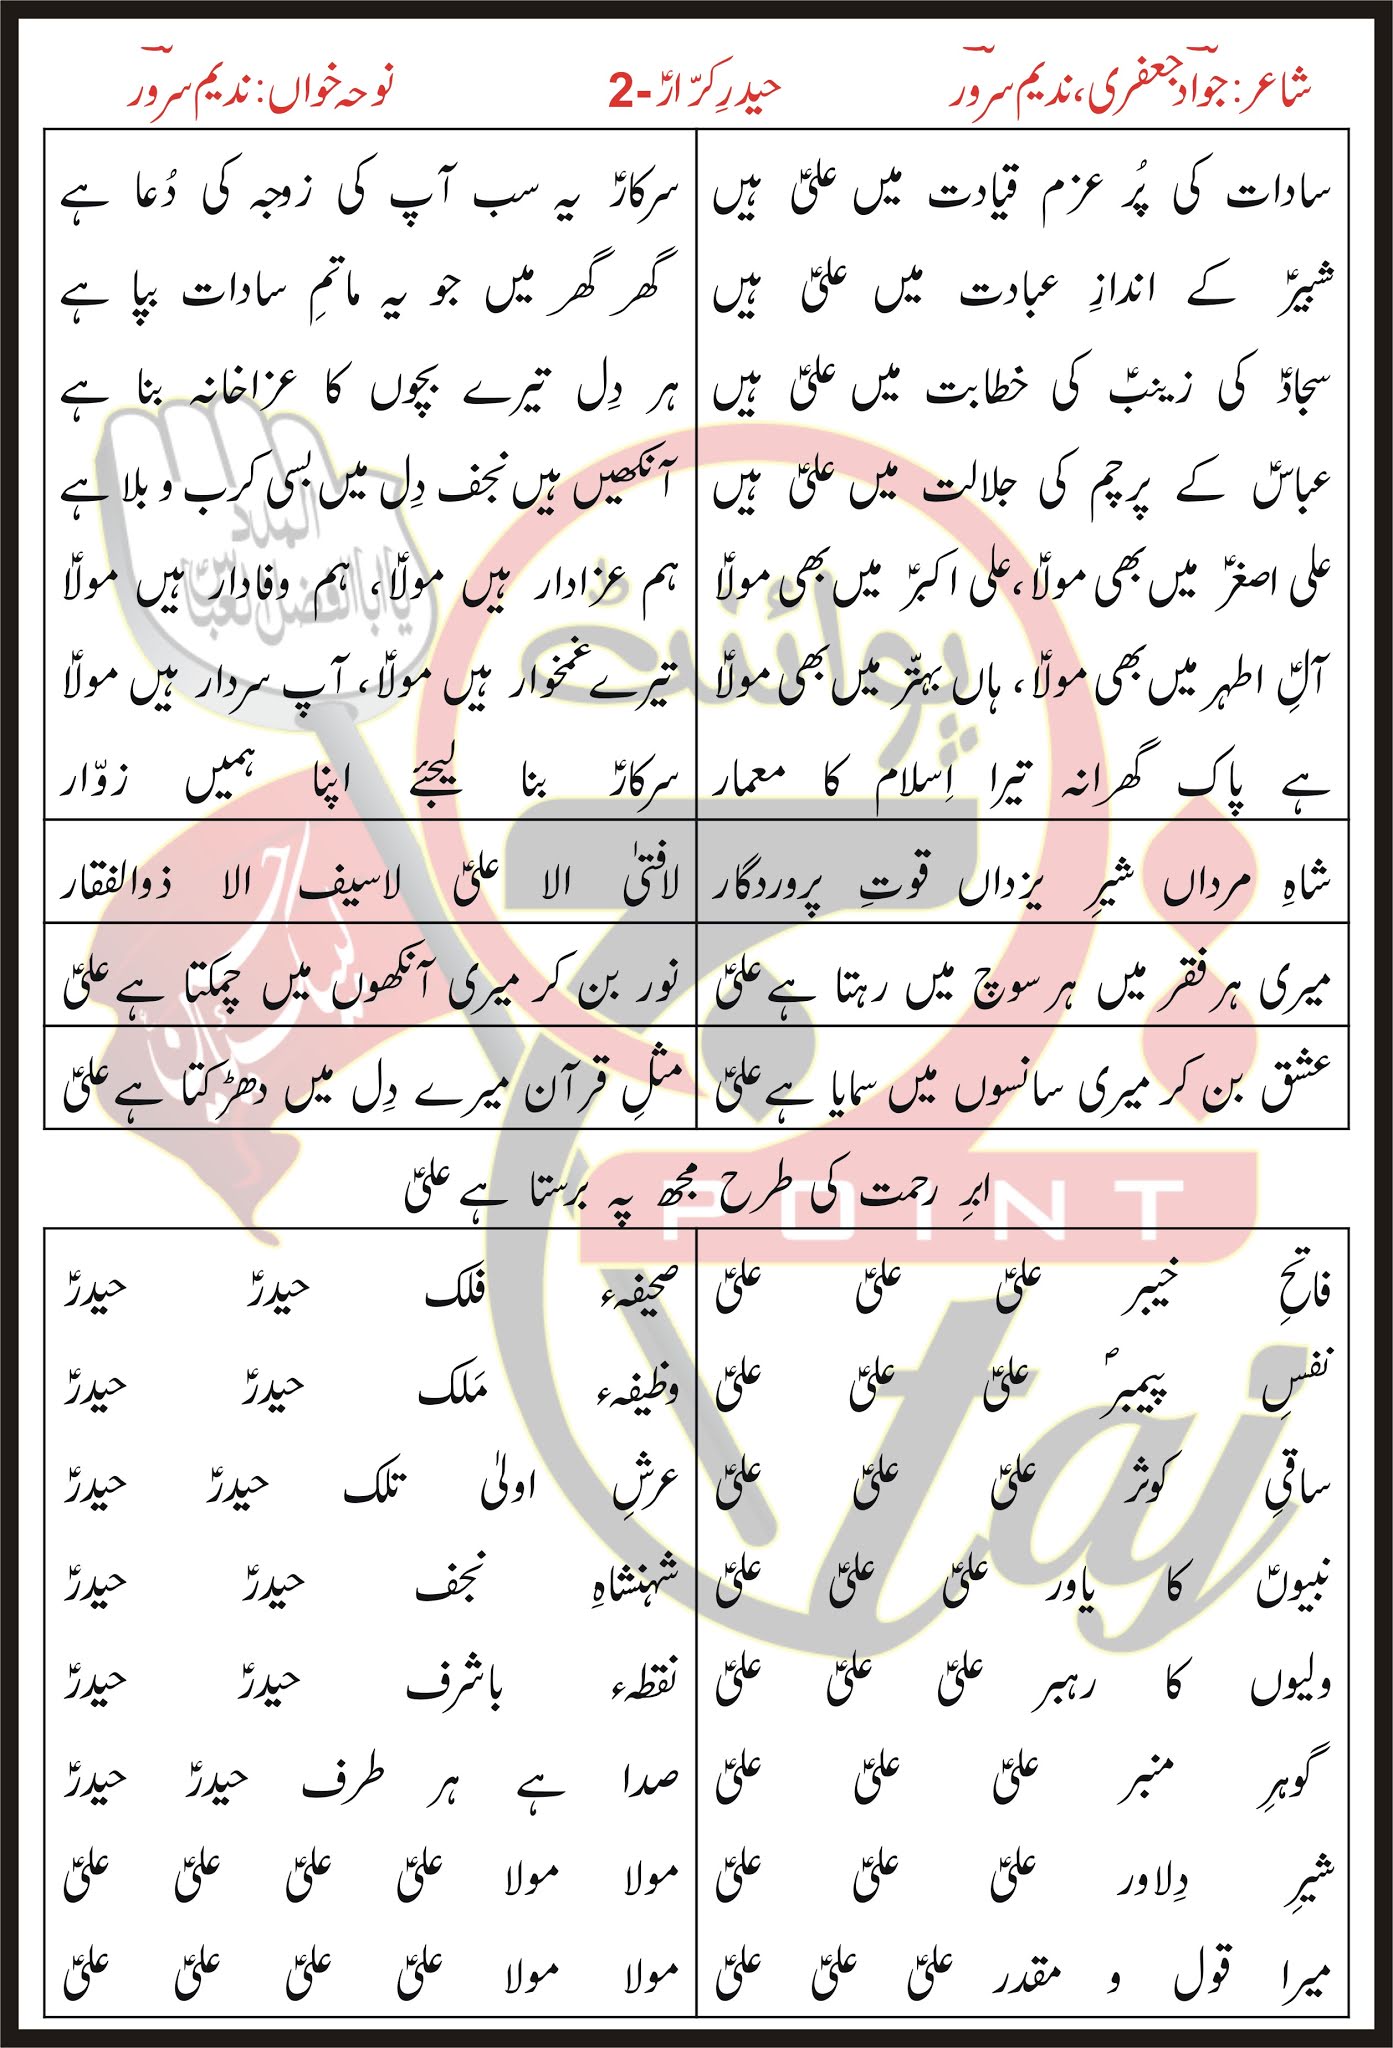 شاعر: جوادؔ جعفری، ندیم سرورؔ
حیدرِ کرّارؑ -2
نوحہ خواں: ندیم سرورؔ
سادات کی پُر عزم قیادت میں علیؑ ہیں
شبیرؑ کے اندازِ عبادت میں علیؑ ہیں
سجادؑ کی زینبؑ کی خطابت میں علیؑ ہیں
عباسؑ کے پرچم کی جلالت میں علیؑ ہیں
علی اصغرؑ میں بھی مولاؑ، علی اکبرؑ میں بھی مولاؑ
آلِؑ اطہر میں بھی مولاؑ، ہاں بہتّر میں بھی مولاؑ
ہے پاک گھرانہ تیرا اِسلام کا معمار
سرکارؑ یہ سب آپ کی زوجہ کی دُعا ہے
گھر گھر میں جو یہ ماتمِ سادات بپا ہے
ہر دِل تیرے بچوں کا عزاخانہ بنا ہے
آنکھیں ہیں نجف دِل میں بسی کرب و بلا ہے
ہم عزادار ہیں مولاؑ، ہم وفادار ہیں مولاؑ
تیرے غمخوار ہیں مولاؑ، آپ سردار ہیں مولاؑ
سرکارؑ بنا لیجئے اپنا ہمیں زوّار
شاہِ مرداں شیرِ یزداں قوتِ پروردگار
لافتیٰ الا علیؑ لاسیف الا ذوالفقار
میری ہر فقر میں ہر سوچ میں رہتا ہے علیؑ
نور بن کر میری آنکھوں میں چمکتا ہے علیؑ
عشق بن کر میری سانسوں میں سمایا ہے علیؑ
مثلِ قرآن میرے دِل میں دھڑکتا ہے علیؑ
ابرِ رحمت کی طرح مجھ پہ برستا ہے علیؑ
فاتحِ خیبر علیؑ علیؑ علیؑ
نفسِ پیمبرؐ علیؑ علیؑ علیؑ
ساقیِ کوثر علیؑ علیؑ علیؑ
نبیوںؑ کا یاور علیؑ علیؑ علیؑ
ولیوں کا رہبر علیؑ علیؑ علیؑ
گوہرِ منبر علیؑ علیؑ علیؑ
شیرِ دِلاور علیؑ علیؑ
میرا قول و مقدر علیؑ علیؑ علیؑ
صحیفہء فلک حیدرؑ حیدرؑ
وظیفہء مَلک حیدرؑ حیدرؑ
عرشِ اولیٰ تلک حیدرؑ حیدرؑ
شہنشاہِ نجف حیدرؑ حیدرؑ
نقطہء باشرف حیدرؑ حیدرؑ
صدا ہے ہر طرف حیدرؑ حیدرؑ
مولا مولا علیؑ علیؑ علیؑ علیؑ
مولا مولا علیؑ علیؑ علیؑ علیؑ
پوائنٹ
POINT
taj